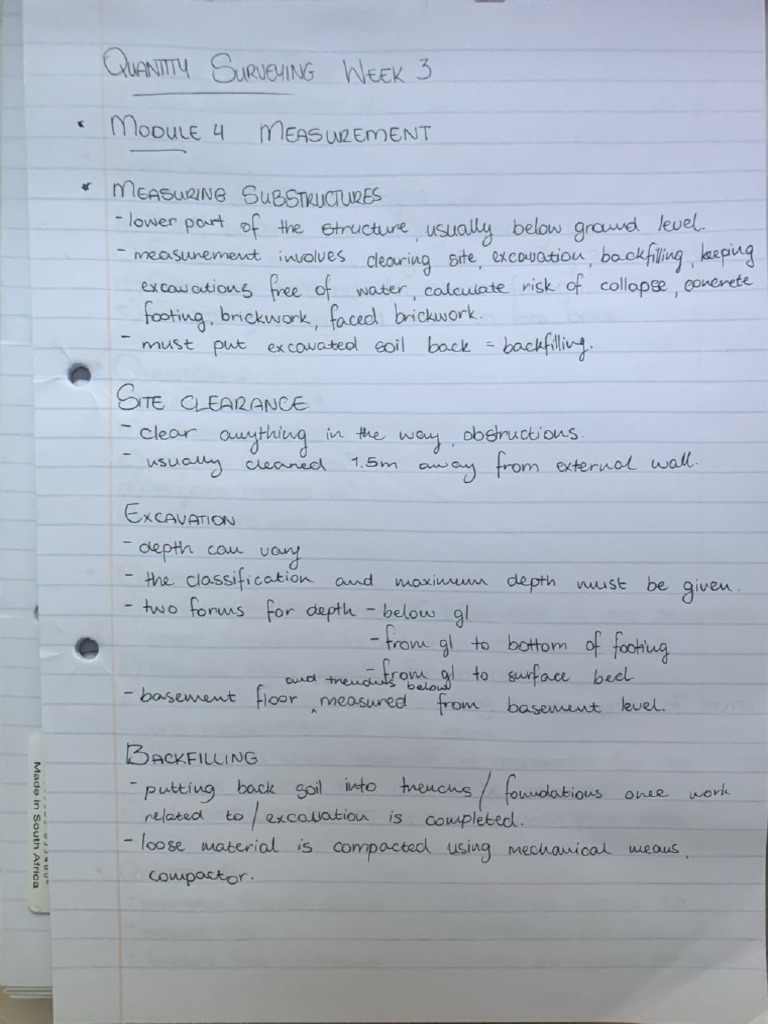 QUANTITY SURVEYING WEEK 3
• MODULE 4 MEASUREMENT
* MEASURING SUBSTRUCTURES
- lower part of the structure, usually below ground level.
- measurement involves clearing site, excavation, backfilling, keeping
excavations free of water, calculate risk of collapse, concrete
footing, brickwork, faced brickwork.
- must put excavated soil back = backfilling.
SITE CLEARANCE
- clear anything in the way, obstructions.
- usually cleared 1.5m away from external wall.
EXCAVATION
- depth can vary
- the classification and maximum depth must be given.
- two forms for depth - below gl
- from gl to bottom of footing
- from gl to surface bed
and trenches below
- basement floor ^ measured from basement level.
BACKFILLING
- putting back soil into trenches / foundations once work
related to / excavation is completed.
- loose material is compacted using mechanical means,
compactor.
Made in South Africa